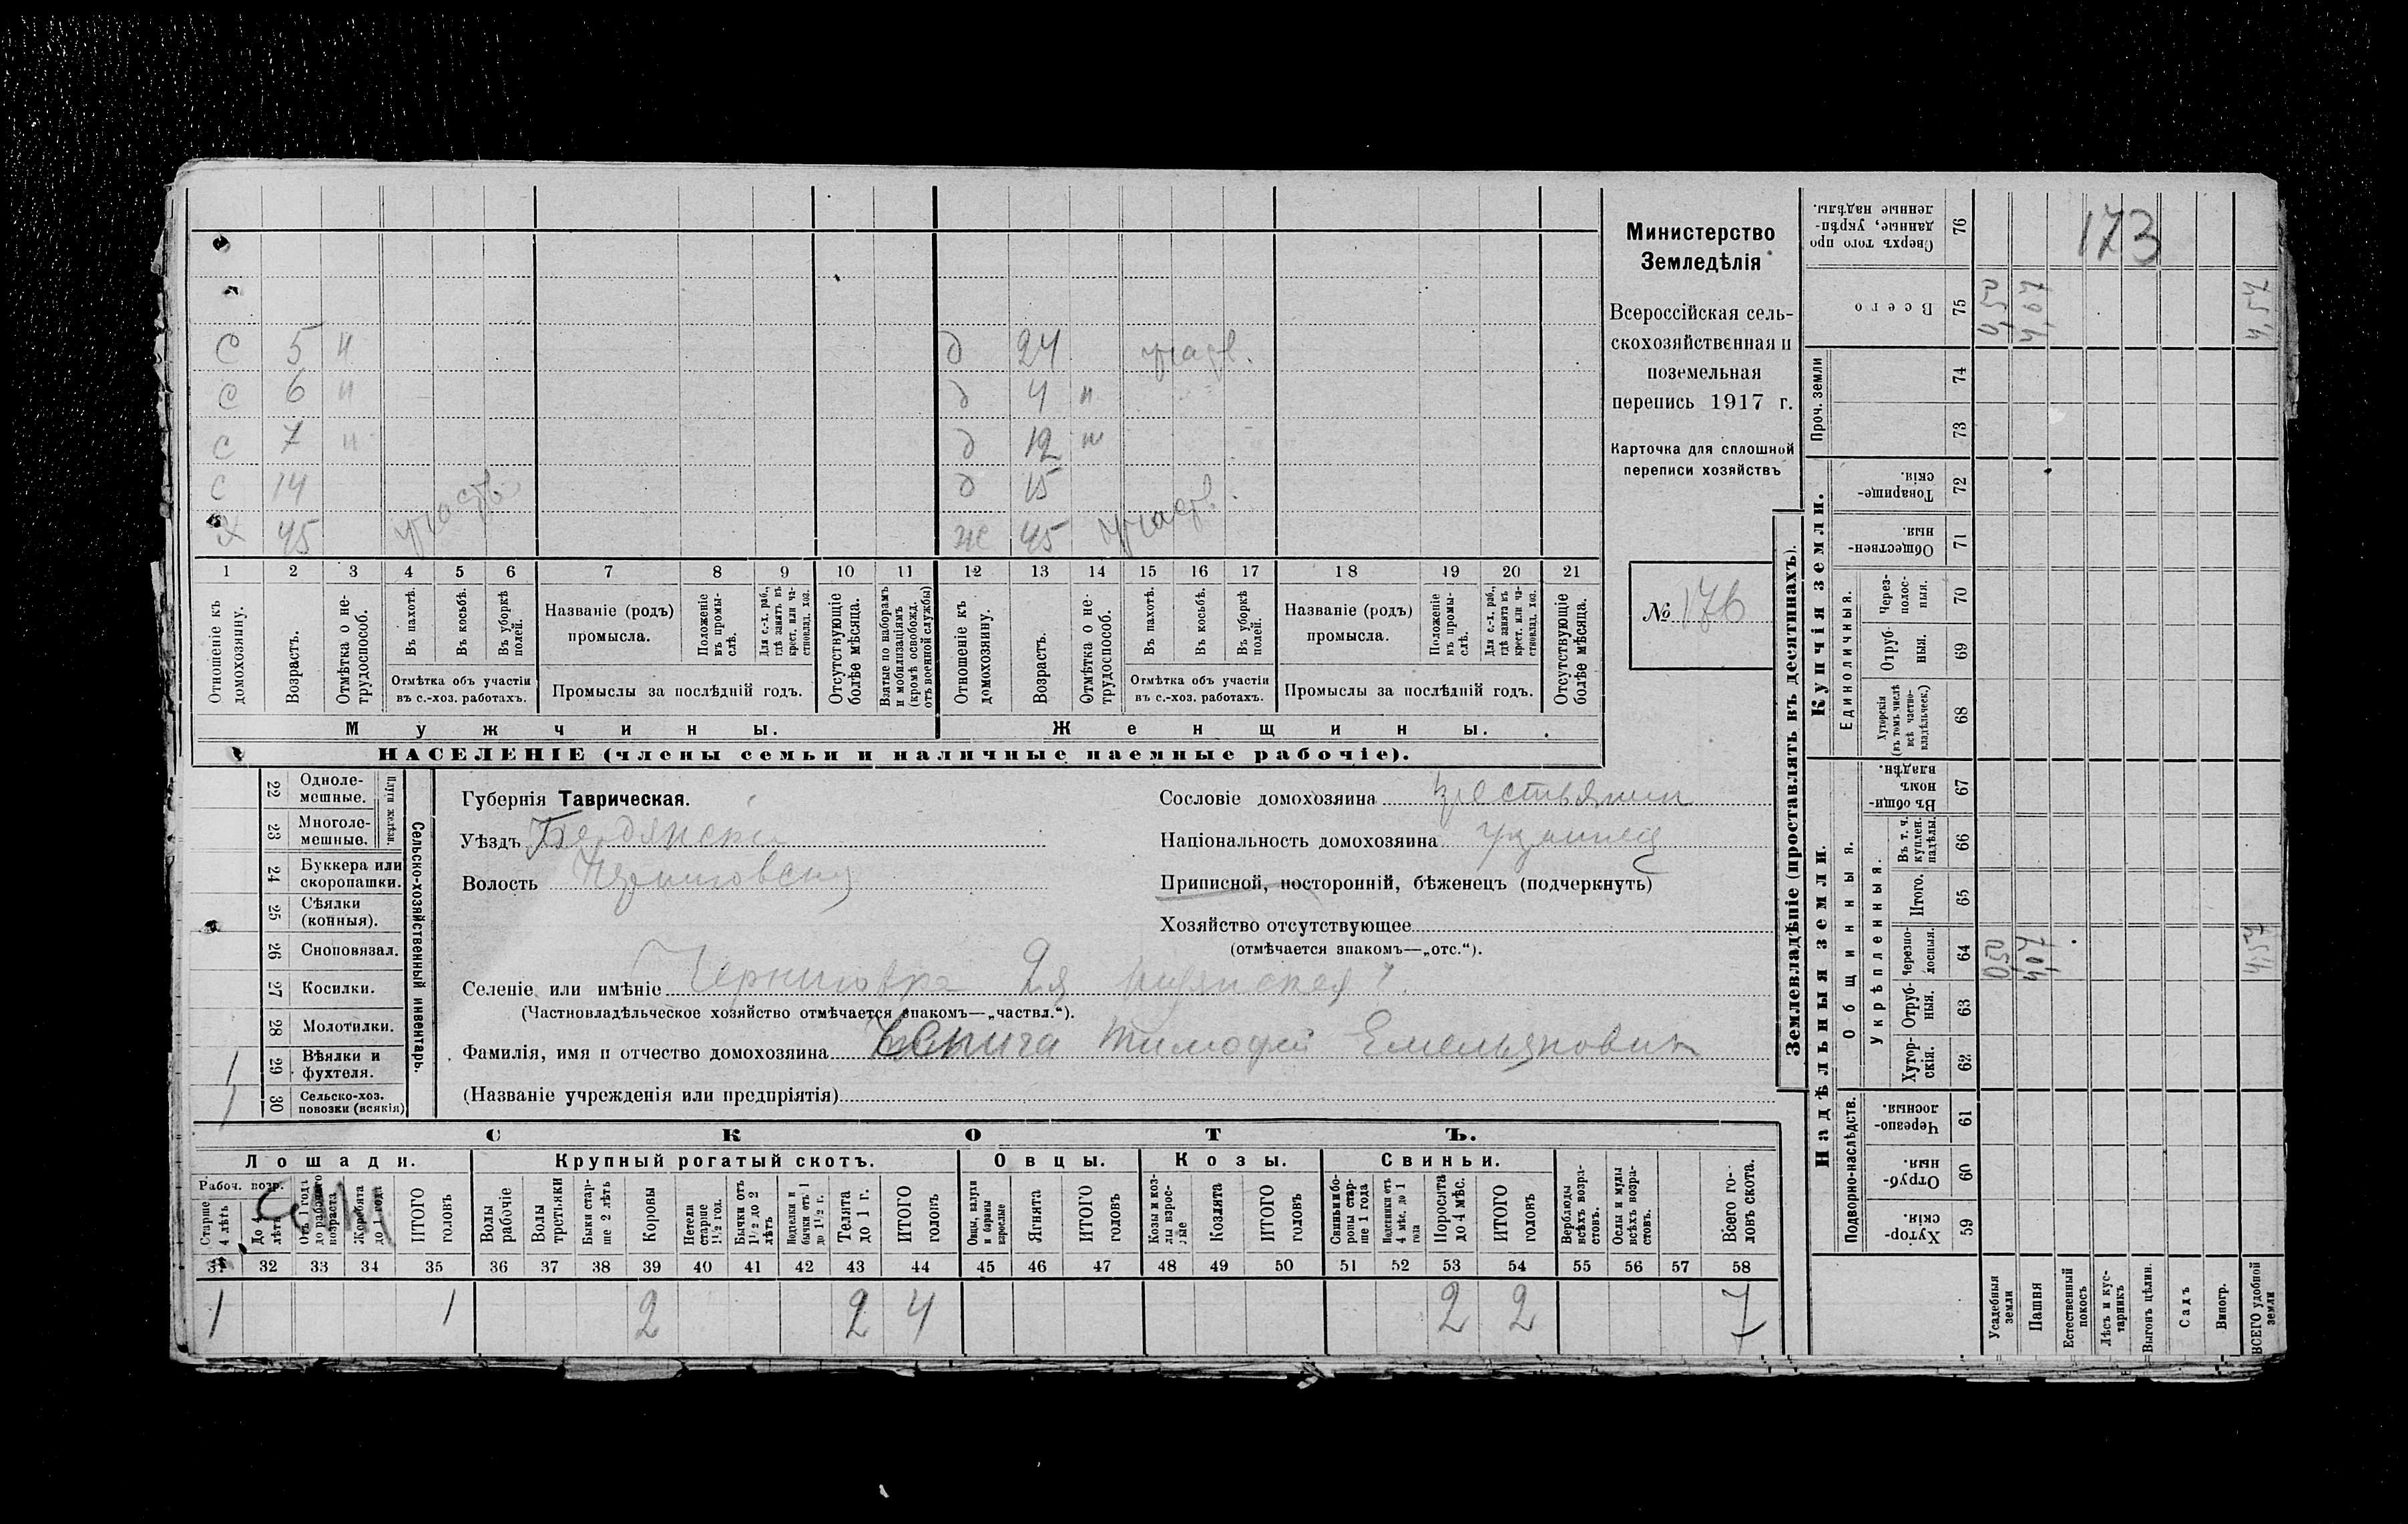 С 5 н д 24 участв.
С 6 н д 4 н
С 7 н д 12 н
С 14 д 15
Х 45 участв. ж 45 участв.
1 2 3 4 5 6 7 8 9 10 11 12 13 14 15 16 17 18 19 20 21
Отношеніе къ домохозяину.
Возрастъ.
Отмѣтка о не-трудоспособ.
Въ пахотѣ.
Въ косьбѣ.
Въ уборкѣ полей.
Отмѣтка объ участіи
въ с.-хоз. работахъ.
Названіе (родъ)
промысла.
Положеніе въ промы-слѣ.
Для с.-х. раб., гдѣ занятъ въ крест. или ча-стновлад. хоз.
Промыслы за послѣдній годъ.
Отсутствующіе болѣе мѣсяца.
Взятые по наборамъ и мобилизаціямъ (кромѣ освобожд. отъ военной службы)
Отношеніе къ домохозяину.
Возрастъ.
Отмѣтка о не-трудоспособ.
Въ пахотѣ.
Въ косьбѣ.
Въ уборкѣ полей.
Отмѣтка объ участіи
въ с.-хоз. работахъ.
Названіе (родъ)
промысла.
Положеніе въ промы-слѣ.
Для с.-х. раб., гдѣ занята въ крест. или ча-стновлад. хоз.
Промыслы за послѣдній годъ.
Отсутствующіе болѣе мѣсяца.
Мужчины. Женщины.
НАСЕЛЕНІЕ (члены семьи и наличные наемные рабочіе).
Министерство
Земледѣлія
Всероссійская сель-
скохозяйственная и
поземельная
перепись 1917 г.
Карточка для сплошной
переписи хозяйствъ
№ 176
22 Одноле-мешные.
23 Многоле-мешные.
Плуги желѣзн.
24 Буккера или скоропашки.
25 Сѣялки (конныя).
26 Сноповязал.
27 Косилки.
28 Молотилки.
1 29 Вѣялки и фухтеля.
1 30 Сельско-хоз. повозки (всякія)
Сельско-хозяйственный инвентарь.
Губернія Таврическая.
Уѣздъ Бердянскій
Волость Черниговская
Сословіе домохозяина крестьянин
Національность домохозяина
Приписной, посторонній, бѣженецъ (подчеркнуть)
Хозяйство отсутствующее
(отмѣчается знакомъ—„отс.“).
Селеніе или имѣніе Черниговка 2я
(Частновладѣльческое хозяйство отмѣчается знакомъ—„частвл.“).
Фамилія, имя и отчество домохозяина Тимофей Емельянович
(Названіе учрежденія или предпріятія)
СКОТЪ.
Лошади. Крупный рогатый скотъ. Овцы. Козы. Свиньи.
Рабоч. возр.
Старше 4 лѣтъ
До 4 лѣтъ
Отъ 1 года до рабочаго возраста
Жеребята до 1 года
ИТОГО головъ
Волы рабочіе
Волы третьяки
Быки стар-ше 2 лѣтъ
Коровы
Нетели старше 1½ год.
Бычки отъ 1½ до 2 лѣтъ
Подтелки и бычки отъ 1 до 1½ г.
Телята до 1 г.
ИТОГО головъ
Овцы, валухи и бараны взрослые
Ягнята
ИТОГО головъ
Козы и коз-лы взрос-лые
Козлята
ИТОГО головъ
Свиньи и бо-ровы стар-ше 1 года
Подсвинки отъ 4 мѣс. до 1 года
Поросята до 4 мѣс.
ИТОГО головъ
Верблюды всѣхъ возра-стовъ.
Ослы и мулы всѣхъ возра-стовъ.
Всего го-ловъ скота.
31 32 33 34 35 36 37 38 39 40 41 42 43 44 45 46 47 48 49 50 51 52 53 54 55 56 57 58
1 1 2 2 4 2 2 7
Землевладѣніе (проставлять въ десятинахъ).
173
Сверхъ того про данные, укрѣп-ленные надѣлы. 76
Всего 75 0,50 4,07 4,57
Проч. земли 74 73
Купчія земли.
Товарище-скія. 72
Обществен-ныя. 71
Единоличныя.
Через-полос-ныя. 70
Отруб-ныя. 69
Хуторскія (въ томъ числѣ всѣ частно-владѣльческ.) 68
Надѣльныя земли.
Общинныя.
Въ общи-номъ владѣн. 67
Укрѣпленныя.
Въ т. ч. куплен. надѣлы. 66
Итого. 65
Черезпо-лосныя. 64 0,50 4,07 4,57
Отруб-ныя. 63
Хутор-скія. 62
Подворно-наслѣдств.
Черезпо-лосныя. 61
Отруб-ныя. 60
Хутор-скія. 59
Усадебныя земли
Пашня
Естественный покосъ
Лѣсъ и кус-тарникъ
Выгонъ цѣлин.
Садъ
Виногр.
ВСЕГО удобной земли